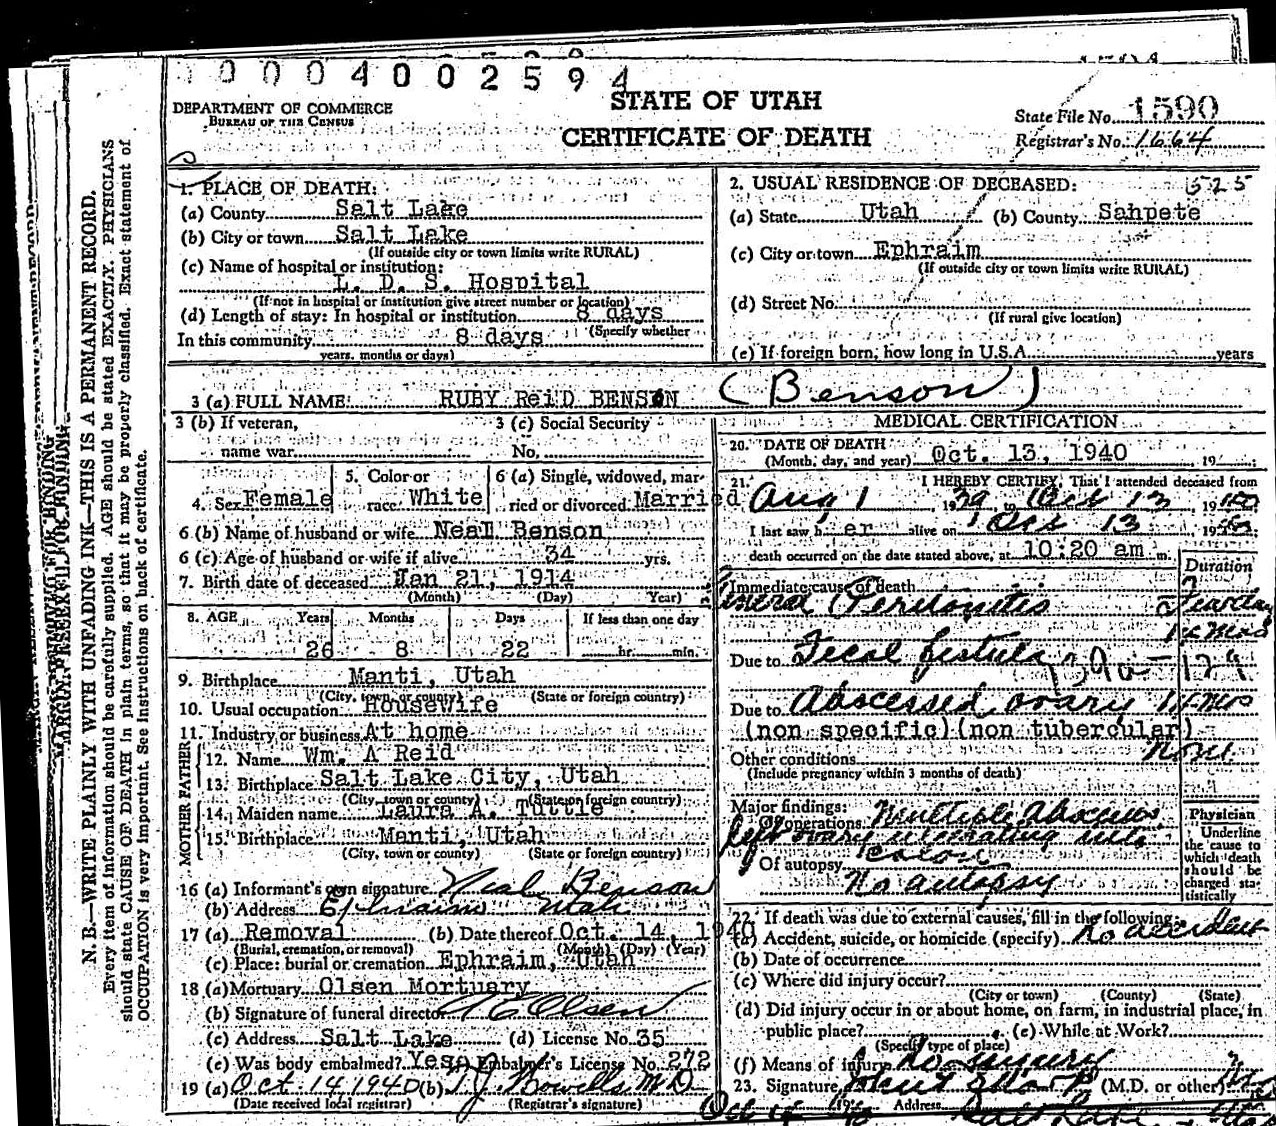 0 0 0 4 0 0 2 5 9 4
DEPARTMENT OF COMMERCE
BUREAU OF THE CENSUS
STATE OF UTAH
CERTIFICATE OF DEATH
State File No. 1590
Registrar's No. 1664
N. B.—WRITE PLAINLY WITH UNFADING INK—THIS IS A PERMANENT RECORD.
Every item of information should be carefully supplied. AGE should be stated EXACTLY. PHYSICIANS
should state CAUSE OF DEATH in plain terms, so that it may be properly classified. Exact statement of
OCCUPATION is very important. See instructions on back of certificate.
1. PLACE OF DEATH:
(a) County Salt Lake
(b) City or town Salt Lake
(If outside city or town limits write RURAL)
(c) Name of hospital or institution:
L. D. S. Hospital
(If not in hospital or institution give street number or location)
(d) Length of stay: In hospital or institution 8 days
(Specify whether
In this community 8 days
years, months or days)
2. USUAL RESIDENCE OF DECEASED: 525
(a) State Utah (b) County Sahpete
(c) City or town Ephraim
(If outside city or town limits write RURAL)
(d) Street No.
(If rural give location)
(e) If foreign born, how long in U.S.A. years
3 (a) FULL NAME: RUBY ReiD BENSON (Benson)
3 (b) If veteran, name war
3 (c) Social Security No.
4. Sex Female
5. Color or race White
6 (a) Single, widowed, married or divorced Married
6 (b) Name of husband or wife Neall Benson
6 (c) Age of husband or wife if alive 34 yrs.
7. Birth date of deceased Jan 21, 1914
(Month) (Day) Year)
8. AGE Years Months Days If less than one day
26 8 22 hr. min.
9. Birthplace Manti, Utah
(City, town, or county) (State or foreign country)
10. Usual occupation Housewife
11. Industry or business At home
FATHER
12. Name Wm. A Reid
13. Birthplace Salt Lake City, Utah
(City, town or county) (State or foreign country)
MOTHER
14. Maiden name Laura A. Tuttle
15. Birthplace Manti, Utah
(City, town or county) (State or foreign country)
16 (a) Informant's own signature Neal Benson
(b) Address Ephraim Utah
17 (a) Removal (b) Date thereof Oct. 14, 1940
(Burial, cremation, or removal) (Month) (Day) (Year)
(c) Place: burial or cremation Ephraim, Utah
18 (a) Mortuary Olsen Mortuary
(b) Signature of funeral director Olsen
(c) Address Salt Lake (d) License No. 35
(e) Was body embalmed? Yes Embalmer's License No. 272
19 (a) Oct. 14, 1940 (b) M.D.
(Date received local registrar) (Registrar's signature)
MEDICAL CERTIFICATION
20. DATE OF DEATH
(Month, day, and year) Oct. 13, 1940 19
21. I HEREBY CERTIFY, That I attended deceased from
Aug 1 1939 to Oct 13 1940
I last saw h er alive on Oct 13 1940
death occurred on the date stated above, at 10:20 am m.
Duration
Immediate cause of death
General Peritonitis
Due to Fecal fistula 129
Due to Abscessed ovary 14 mos
(non specific)(non tubercular)
Other conditions None
(Include pregnancy within 3 months of death)
Major findings:
Of operations Multiple Abscesses
left ovary into
colon
Of autopsy
No autopsy
Physician
Underline
the cause to
which death
should be
charged sta-
tistically
22. If death was due to external causes, fill in the following:
(a) Accident, suicide, or homicide (specify) No accident
(b) Date of occurrence
(c) Where did injury occur?
(City or town) (County) (State)
(d) Did injury occur in or about home, on farm, in industrial place, in
public place? (e) While at Work?
(Specify type of place)
(f) Means of injury No injury
23. Signature (M.D. or other)
Address Salt Lake, Utah